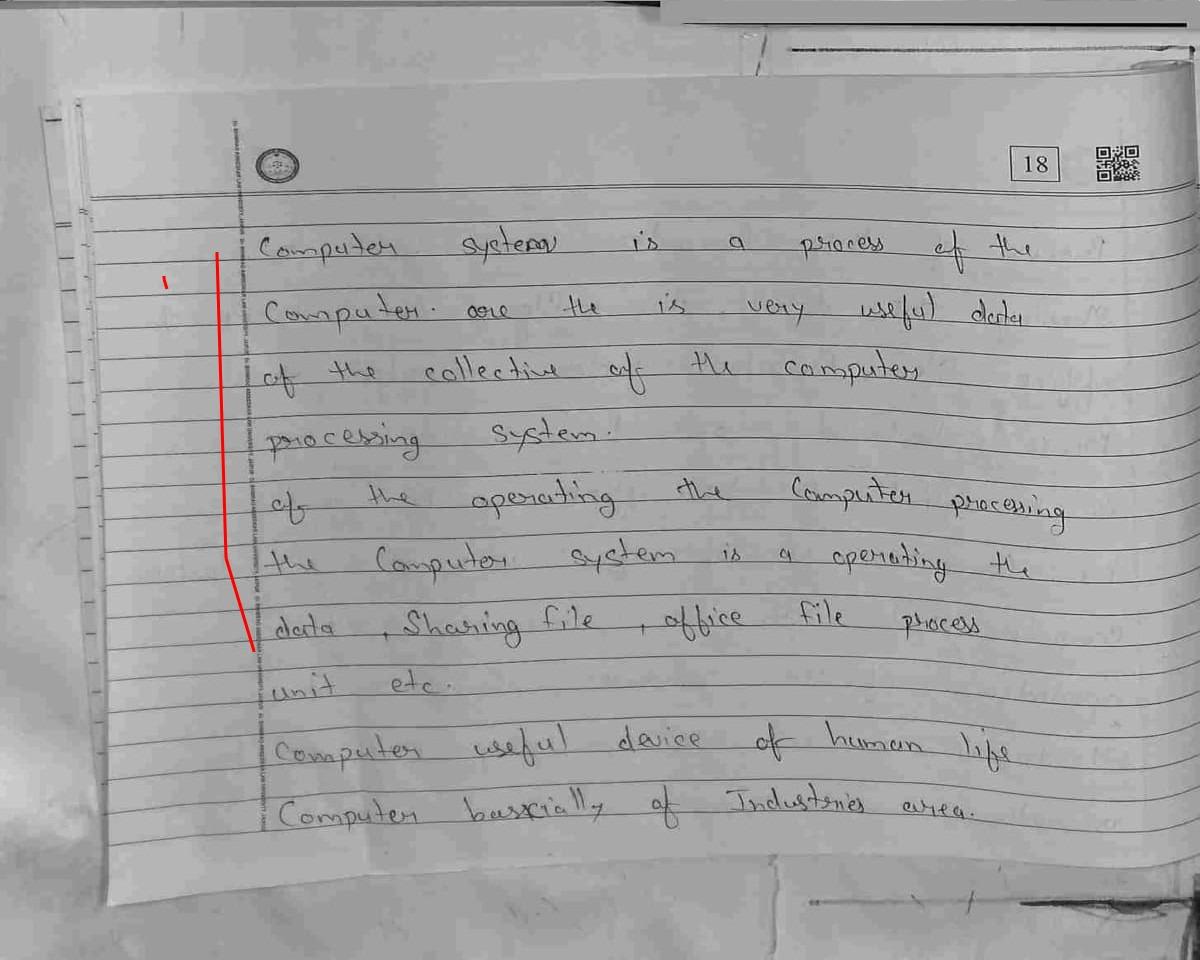 18
Computer system is a process of the
Computer. are the is very useful data
of the collective of the computer
processing system.
of the operating the Computer processing
the Computer system is a operating the
data , Sharing file , office file process
unit etc.
Computer useful device of human life
Computer of Industries area.